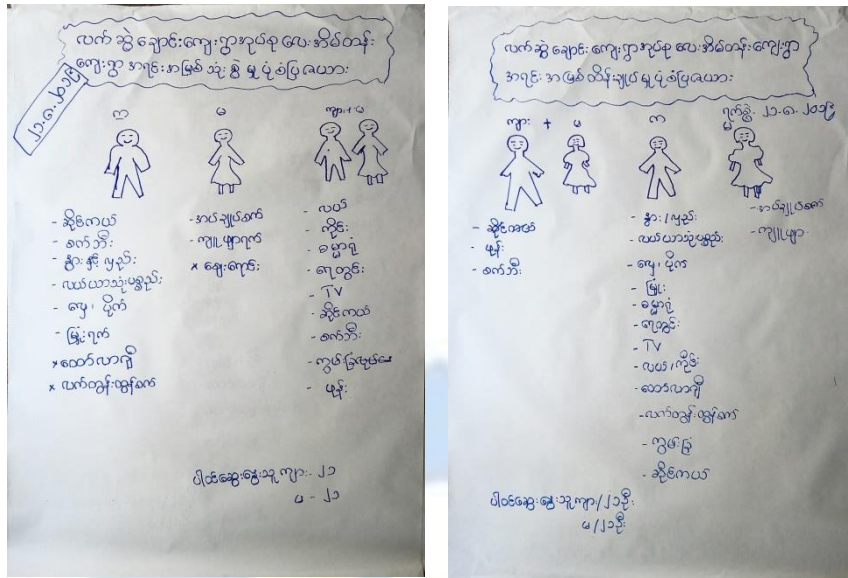 လက်ဆွဲချောင်းကျေးရွာအုပ်စု လေးအိမ်တန်း
ကျေးရွာ အရင်းအမြစ် သုံးစွဲမှု ပုံစံပြဇယား
၂၁.၈.၂၀၁၉
ကျား
မ
ကျား+မ
- ဆိုင်ကယ်
- စက်ဘီး
- နွားနှင့်လှည်း
- လယ်ယာသုံးပစ္စည်း
- လှေ၊ ပိုက်
- မြှုံးရက်
x ထော်လာဂျီ
x လက်တွန်းထွန်စက်
- အပ်ချုပ်စက်
- ကျူဖျာရက်
x ဈေးရောင်း
- လယ်
- ကိုင်း
- ဓမ္မာရုံ
- ရေတွင်း
- TV
- ဆိုင်ကယ်
- စက်ဘီး
- ဖုန်း
ပါဝင်ဆွေးနွေးသူ ကျား - ၂၁
မ - ၂၁
လက်ဆွဲချောင်းကျေးရွာအုပ်စု လေးအိမ်တန်းကျေးရွာ
အရင်းအမြစ်ထိန်းချုပ်မှု ပုံစံပြဇယား
ရက်စွဲ. ၂၁.၈.၂၀၁၉
ကျား + မ
ကျား
မ
- ဆိုင်ကယ်
- ဖုန်း
- စက်ဘီး
- နွား/လှည်း
- လယ်ယာသုံးပစ္စည်း
- လှေ၊ ပိုက်
- မြှုံး
- ဓမ္မာရုံ
- ရေတွင်း
- TV
- လယ်/ကိုင်း
- ထော်လာဂျီ
- လက်တွန်းထွန်စက်
- ကွမ်းခြံ
- ဆိုင်ကယ်
- အပ်ချုပ်စက်
- ကျူဖျာ
ပါဝင်ဆွေးနွေးသူ ကျား/၂၁ဦး
မ/၂၁ဦး